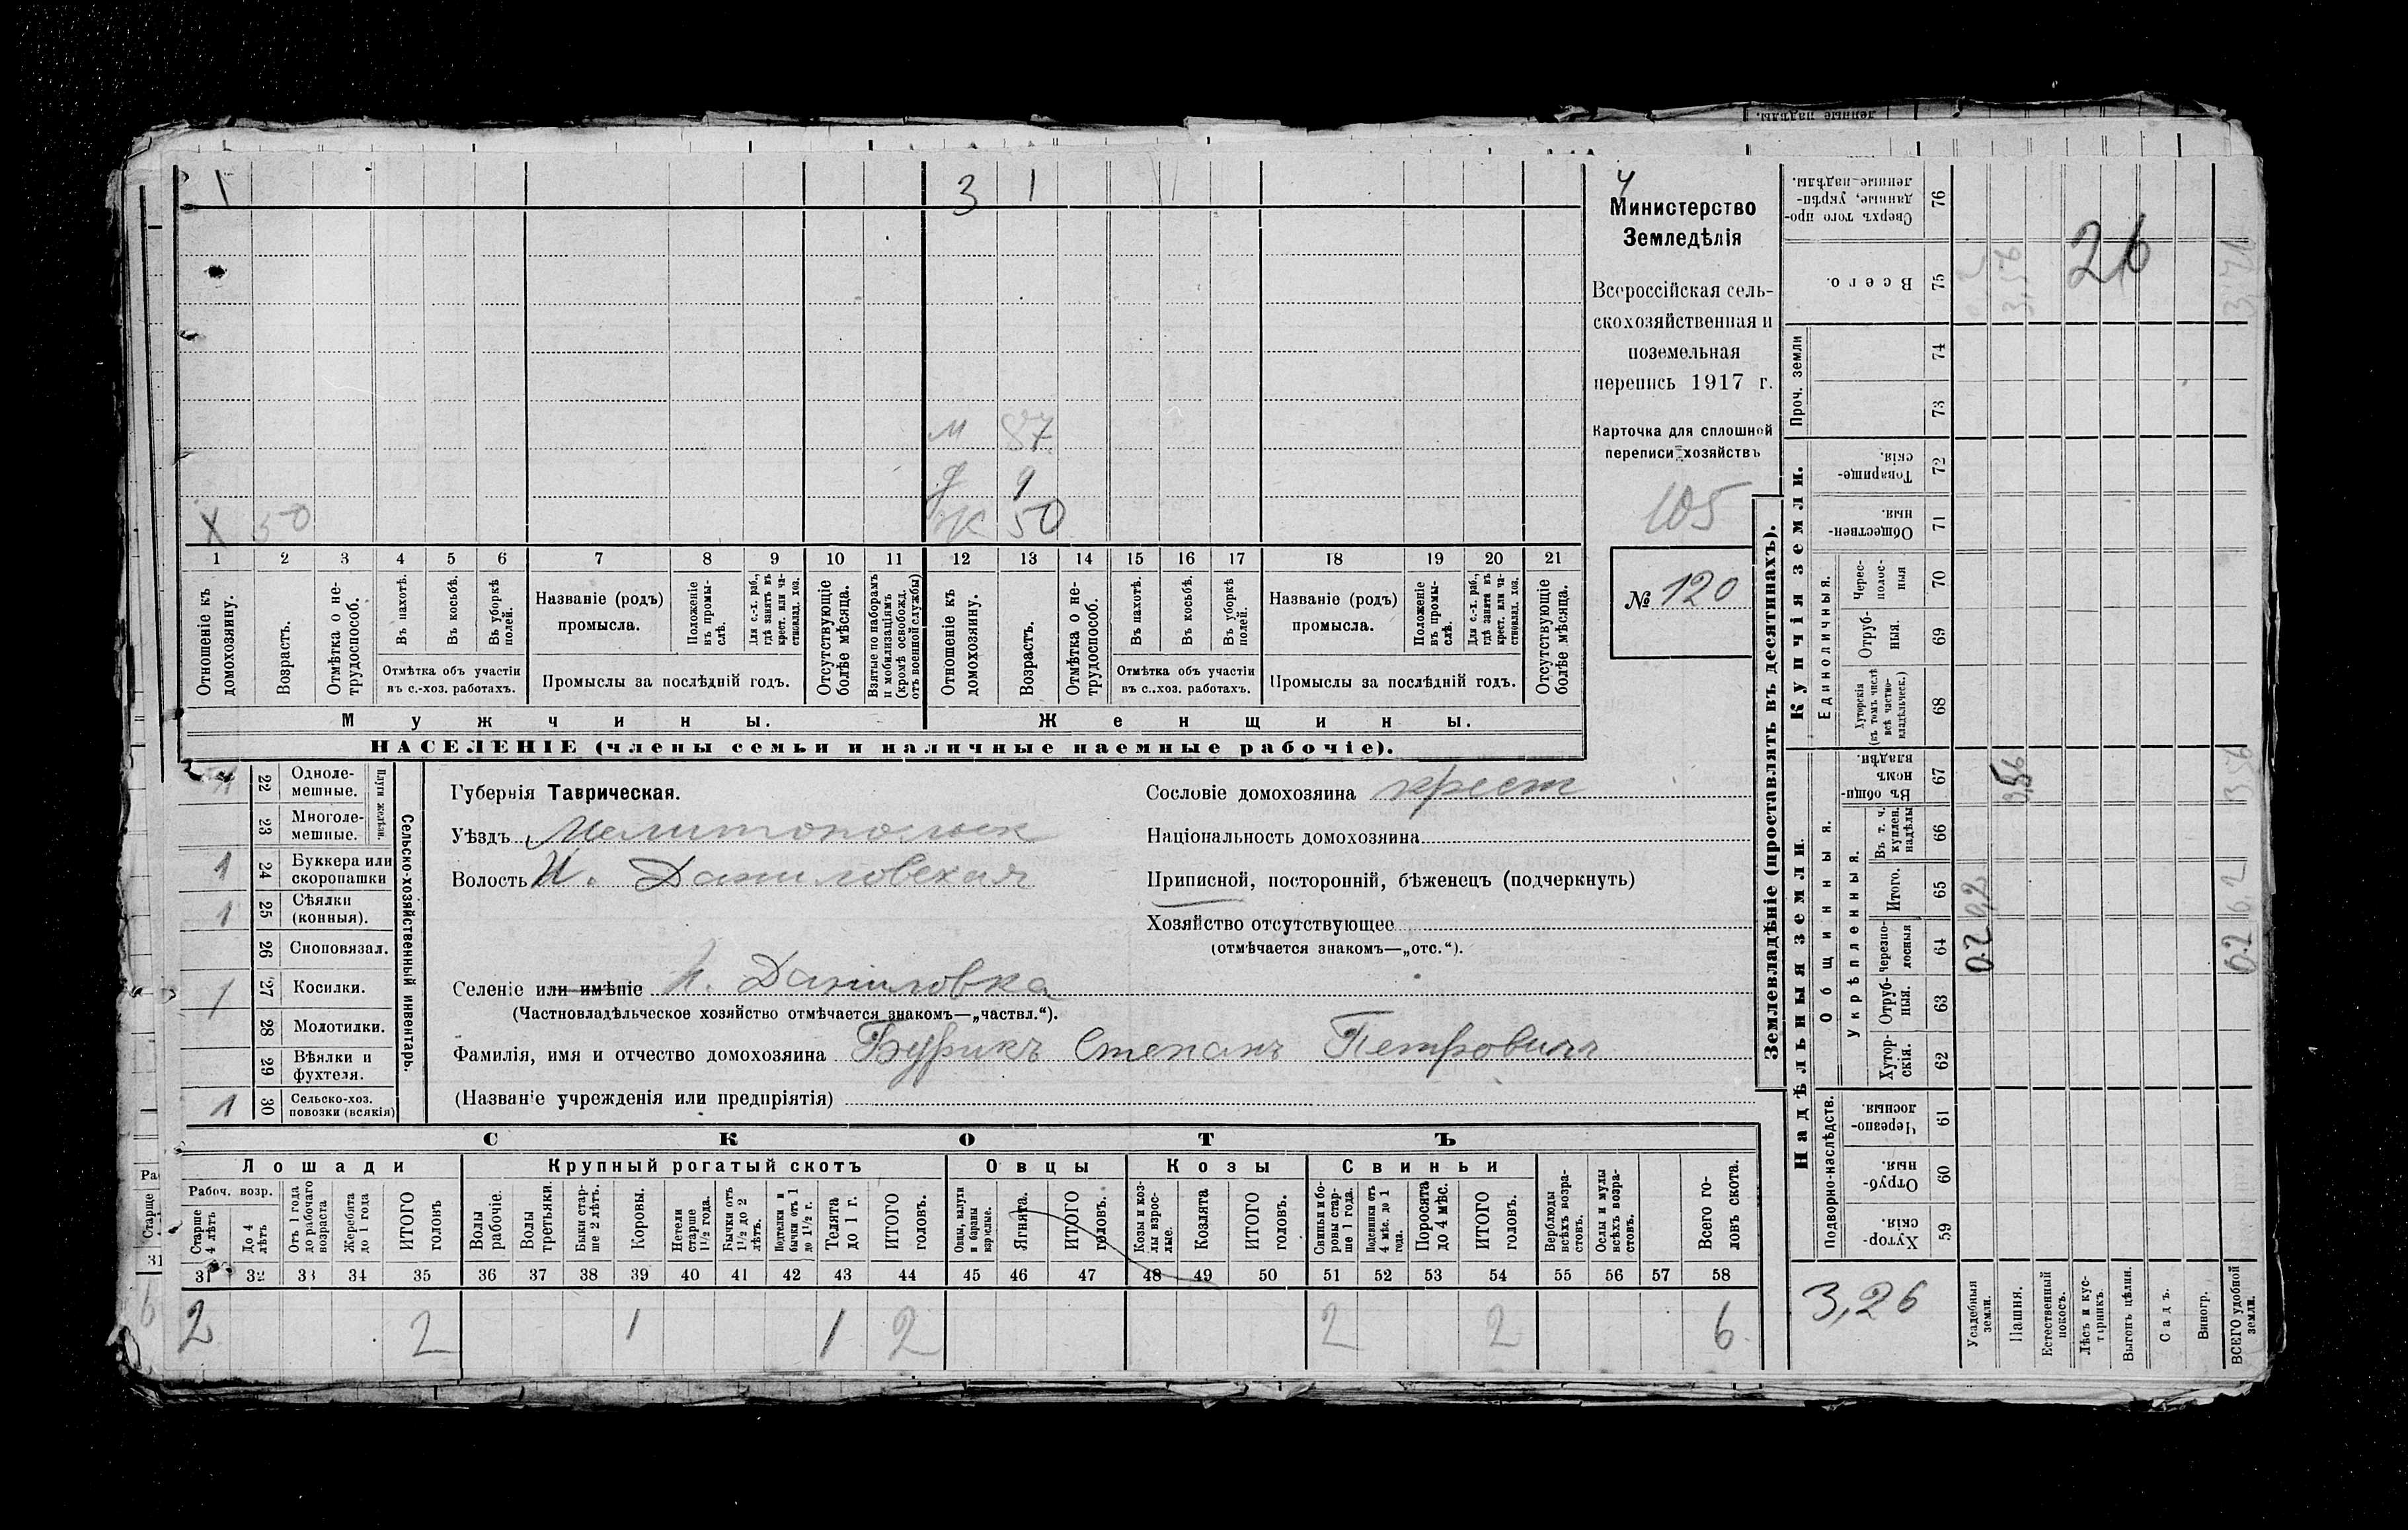 1 3 1
м 87
д 9
х 50 ж 50
1 2 3 4 5 6 7 8 9 10 11 12 13 14 15 16 17 18 19 20 21
Отношеніе къ домохозяину.
Возрастъ.
Отмѣтка о не-трудоспособ.
Въ пахотѣ.
Въ косьбѣ.
Въ уборкѣ полей.
Отмѣтка объ участіи въ с.-хоз. работахъ.
Названіе (родъ) промысла.
Положеніе въ промы-слѣ.
Для с.-х. раб., гдѣ занятъ въ крест. или ча-стновлад. хоз.
Промыслы за послѣдній годъ.
Отсутствующіе болѣе мѣсяца.
Взятые по наборамъ и мобилизаціямъ (кромѣ освобожд. отъ военной службы)
Отношеніе къ домохозяину.
Возрастъ.
Отмѣтка о не-трудоспособ.
Въ пахотѣ.
Въ косьбѣ.
Въ уборкѣ полей.
Отмѣтка объ участіи въ с.-хоз. работахъ.
Названіе (родъ) промысла.
Положеніе въ промы-слѣ.
Для с.-х. раб., гдѣ занята въ крест. или ча-стновлад. хоз.
Промыслы за послѣдній годъ.
Отсутствующіе болѣе мѣсяца.
Мужчины. Женщины.
НАСЕЛЕНІЕ (члены семьи и наличные наемные рабочіе).
4
Министерство
Земледѣлія
Всероссійская сель-
скохозяйственная и
поземельная
перепись 1917 г.
Карточка для сплошной
переписи хозяйствъ
105
№ 120
Плуги желѣзн.
22 Одноле-мешные.
23 Многоле-мешные.
1 24 Буккера или скоропашки
1 25 Сѣялки (конныя).
26 Сноповязал.
1 27 Косилки.
28 Молотилки.
29 Вѣялки и фухтеля.
1 30 Сельско-хоз. повозки (всякія)
Сельско-хозяйственный инвентарь.
Губернія Таврическая.
Уѣздъ Мелитопольск
Волость Н. Даниловская
Селеніе или имѣніе Н. Даниловка
(Частновладѣльческое хозяйство отмѣчается знакомъ—„частвл.“).
Фамилія, имя и отчество домохозяина Бурикъ Степанъ Петровичъ
(Названіе учрежденія или предпріятія)
Сословіе домохозяина крест
Національность домохозяина
Приписной, посторонній, бѣженецъ (подчеркнуть)
Хозяйство отсутствующее
(отмѣчается знакомъ—„отс.“).
СКОТЪ
Лошади Крупный рогатый скотъ Овцы Козы Свиньи
Рабоч. возр.
Старше 4 лѣтъ
До 4 лѣтъ
Отъ 1 года до рабочаго возраста
Жеребята до 1 года
ИТОГО головъ
Волы рабочіе.
Волы третьяки.
Быки стар-ше 2 лѣтъ.
Коровы.
Нетели старше 1½ года.
Бычки отъ 1½ до 2 лѣтъ.
Подтелки и бычки отъ 1 до 1½ г.
Телята до 1 г.
ИТОГО головъ.
Овцы, валухи и бараны взрослые.
Ягнята.
ИТОГО головъ.
Козы и коз-лы взрос-лые.
Козлята
ИТОГО головъ.
Свиньи и бо-ровы стар-ше 1 года.
Подсвинки отъ 4 мѣс. до 1 года.
Поросята до 4 мѣс.
ИТОГО головъ.
Верблюды всѣхъ возра-стовъ.
Ослы и мулы всѣхъ возра-стовъ.
Всего го-ловъ скота.
31 32 33 34 35 36 37 38 39 40 41 42 43 44 45 46 47 48 49 50 51 52 53 54 55 56 57 58
2 2 1 1 2 2 2 6
Землевладѣніе (проставлять въ десятинахъ).
Купчія земли.
Надѣльныя земли.
Сверхъ того про-данные, укрѣп-ленные надѣлы. 76
Всего. 75
Проч. земли 74 73
Товарище-скія. 72
Обществен-ныя. 71
Единоличныя.
Черес-полос-ныя 70
Отруб-ныя. 69
Хуторскія (въ томъ числѣ всѣ частно-владѣльческ.) 68
Общинныя.
Въ общи-номъ владѣн. 67
Укрѣпленныя.
Въ т. ч. куплен. надѣлы 66
Итого. 65
Черезпо-лосныя 64
Отруб-ныя. 63
Хутор-скія. 62
Подворно-наслѣдств.
Черезпо-лосныя. 61
Отруб-ныя. 60
Хутор-скія. 59
26
3,56
3,56
0,2 0,2
3,56
0.2 0,2
3,26
Усадебныя земли.
Пашня.
Естественный покосъ.
Лѣсъ и кус-тарникъ.
Выгонъ цѣлин.
Садъ.
Виногр.
ВСЕГО удобной земли.